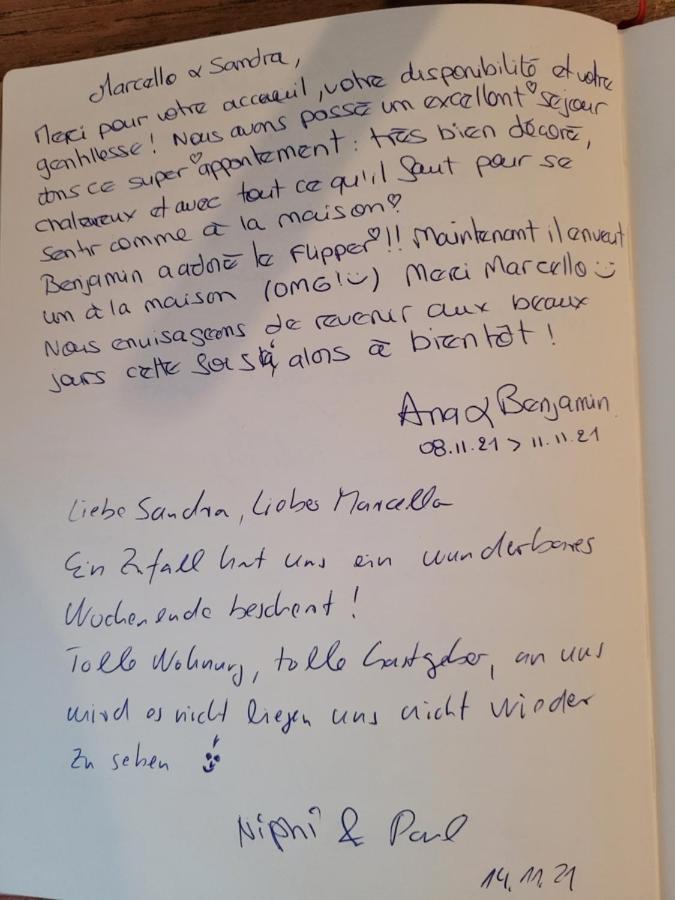 Marcello & Sandra,
Merci pour votre acceuil, votre disponibilité et votre
gentillesse! Nous avons passé un excellent séjour
dns ce super appartement: très bien décoré,
chaleureux et avec tout ce qu'il faut pour se
sentir comme à la maison♡
Benjamin a adoré le Flipper♡!! Maintenant il en veut
un à la maison (OMG!☺) Merci Marcello☺
Nous envisageons de revenir aux beaux
jours cette fois, alors à bientôt!
Ana & Benjamin
08.11.21 > 11.11.21
Liebe Sandra, Liebes Marcella
Ein Zufall hat uns ein wunderbares
Wochenende beschert!
Tolle Wohnung, tolle Gastgeber, an uns
wird es nicht liegen uns nicht wieder
zu sehen
Niphi & Paul
14.11.21